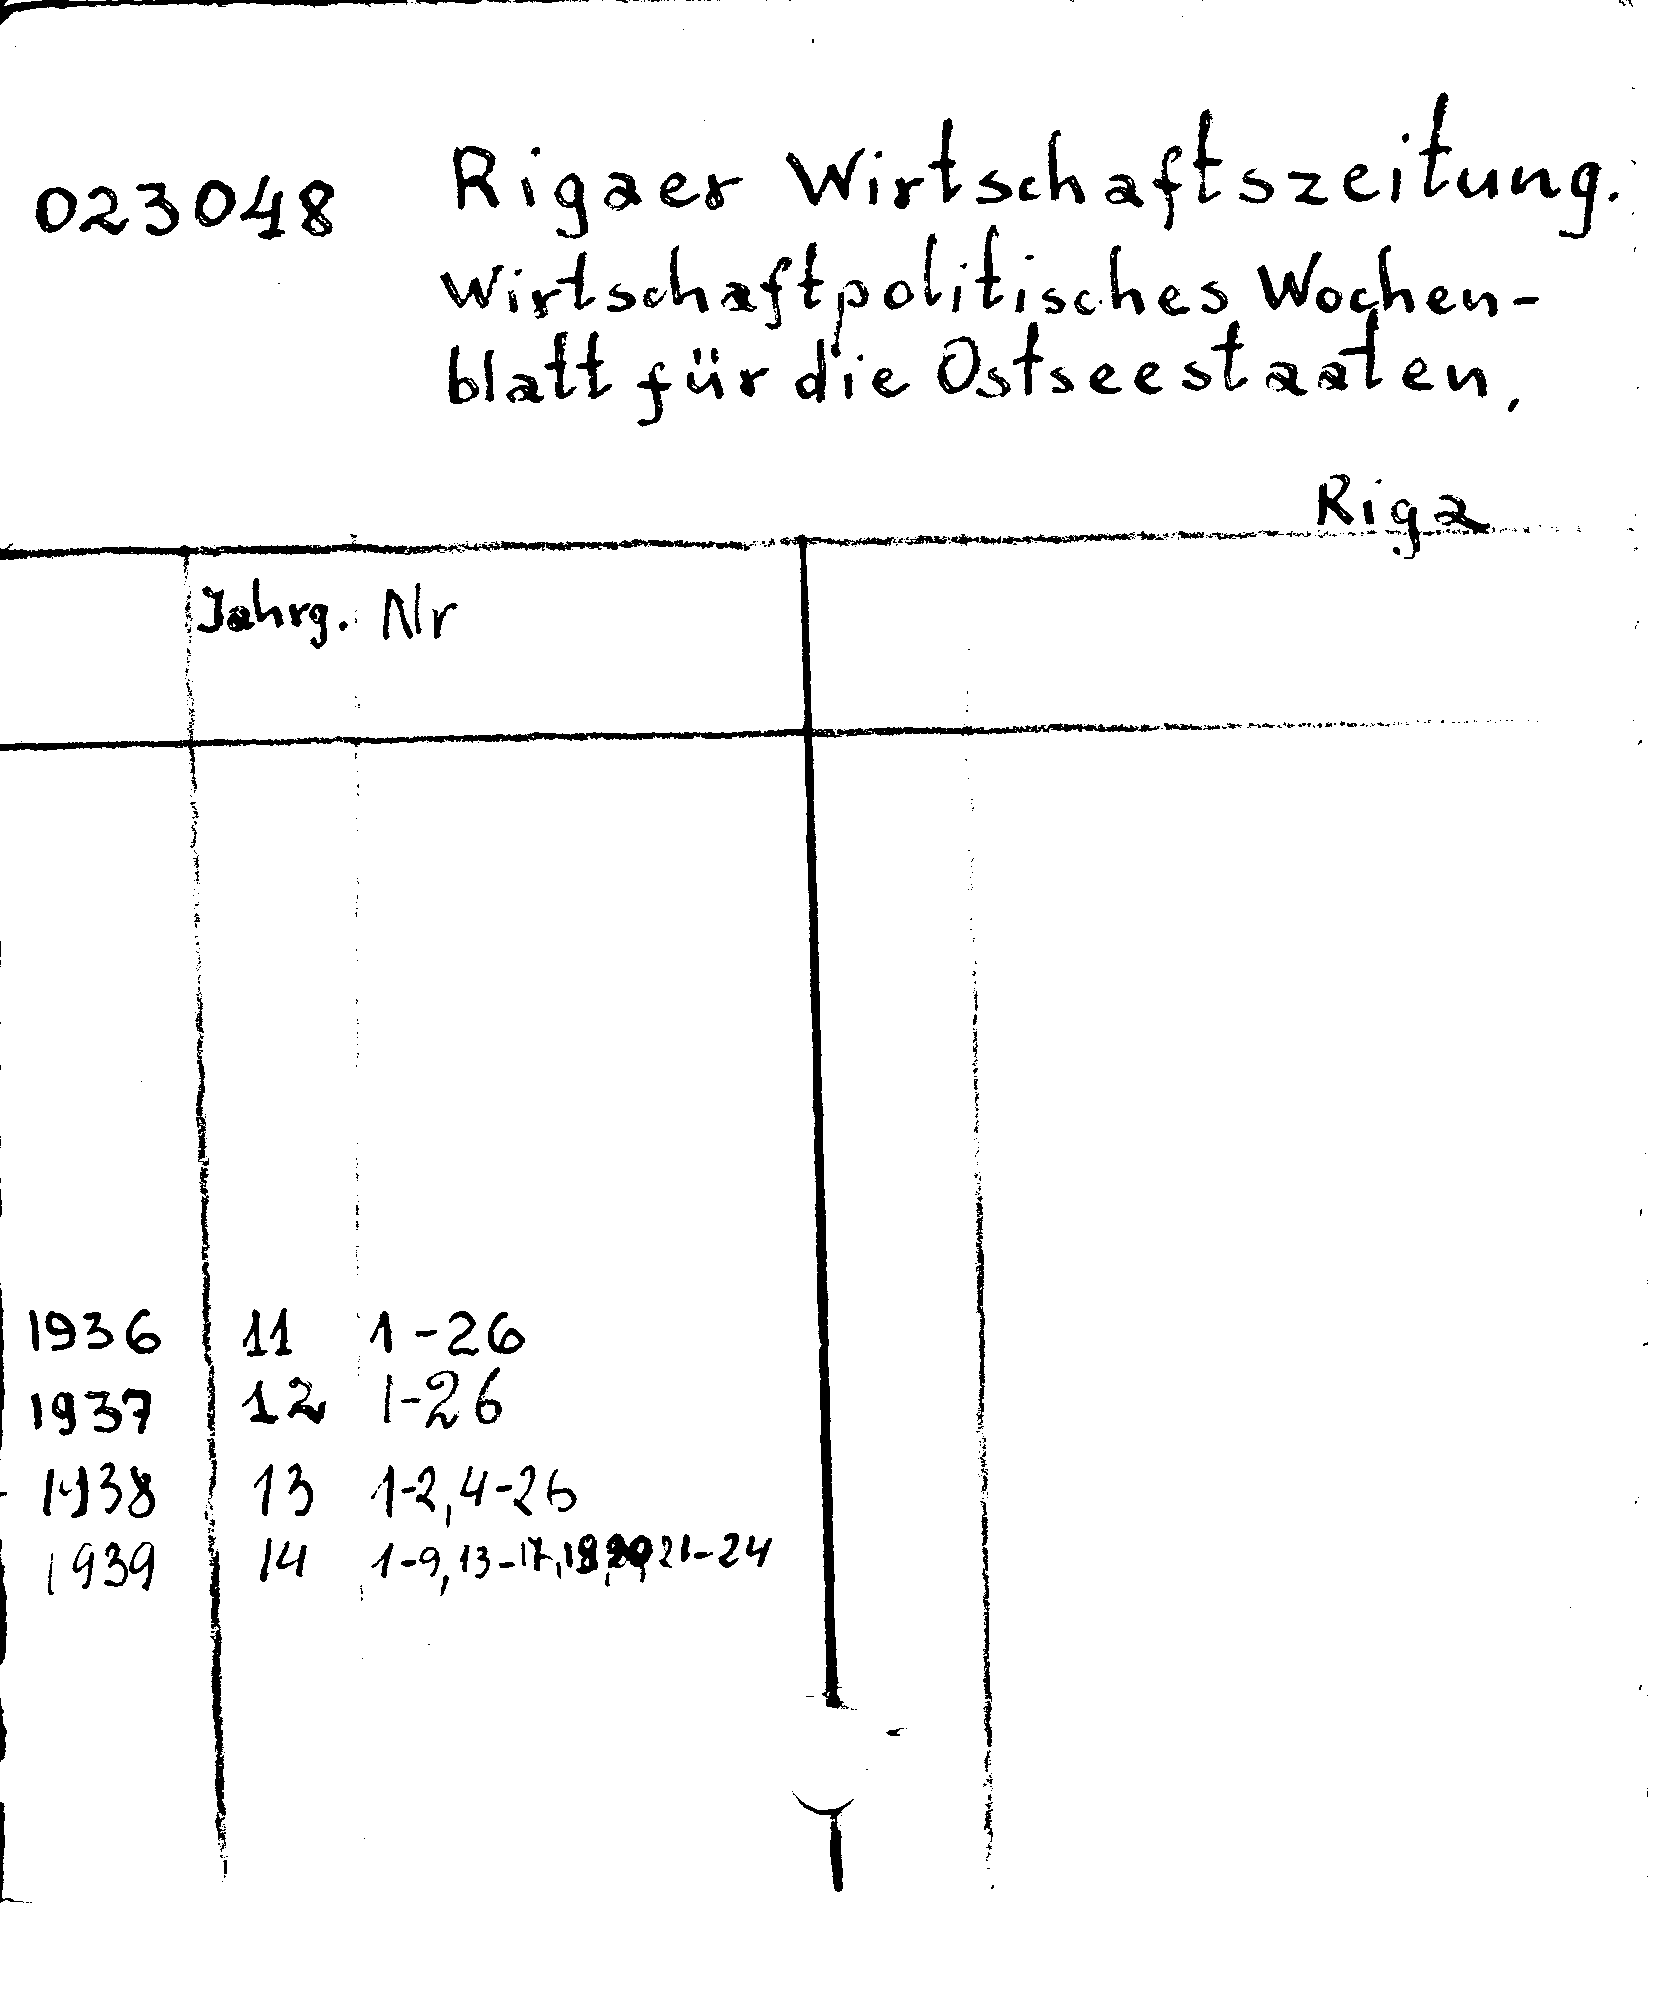 023048 Rigaer Wirtschaftszeitung.
Wirtschaftpolitisches Wochen-
blatt für die Ostseestaaten,
Riga
Jahrg. Nr
1936 11 1-26
1937 12 1-26
1938 13 1-2, 4-26
1939 14 1-9, 13-17, 21-24